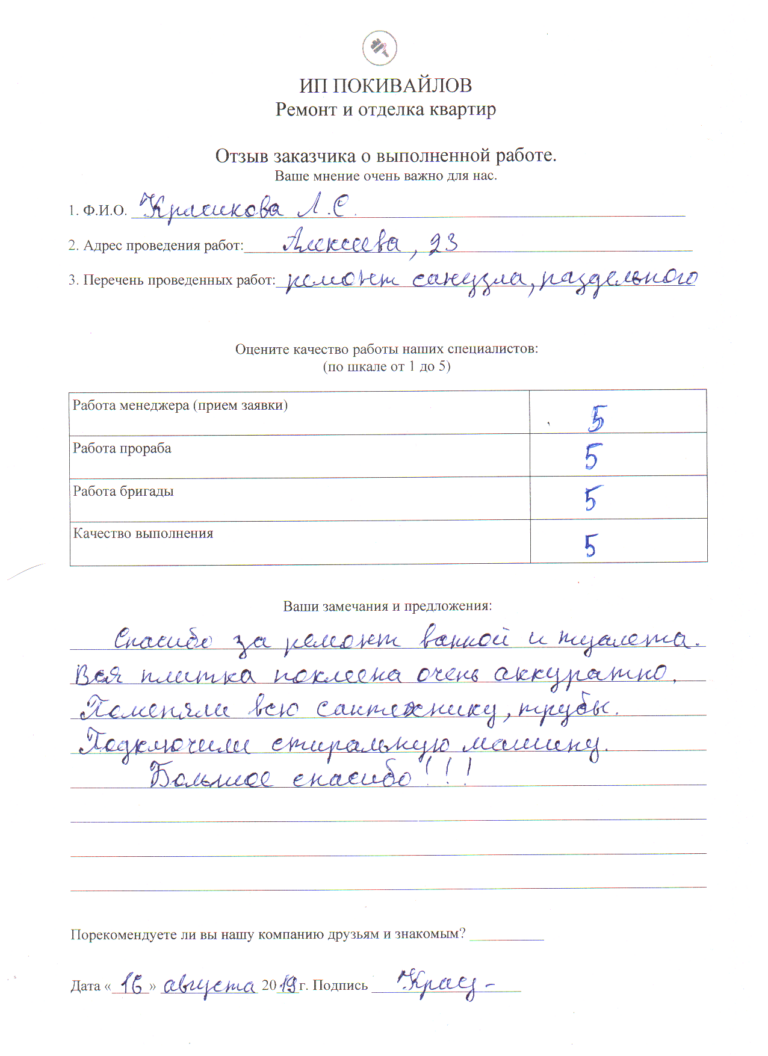 ИП ПОКИВАЙЛОВ
Ремонт и отделка квартир
Отзыв заказчика о выполненной работе.
Ваше мнение очень важно для нас.
1. Ф.И.О. Красикова Л.С.
2. Адрес проведения работ: Алексеева, 23
3. Перечень проведенных работ: ремонт санузла, раздельного
Оцените качество работы наших специалистов:
(по шкале от 1 до 5)
Работа менеджера (прием заявки) 5
Работа прораба 5
Работа бригады 5
Качество выполнения 5
Ваши замечания и предложения:
Спасибо за ремонт ванной и туалета.
Вся плитка поклеена очень аккуратно.
Поменяли всю сантехнику, трубы.
Подключили стиральную машину.
Большое спасибо!!!
Порекомендуете ли вы нашу компанию друзьям и знакомым?
Дата «16» августа 2019г. Подпись Крас